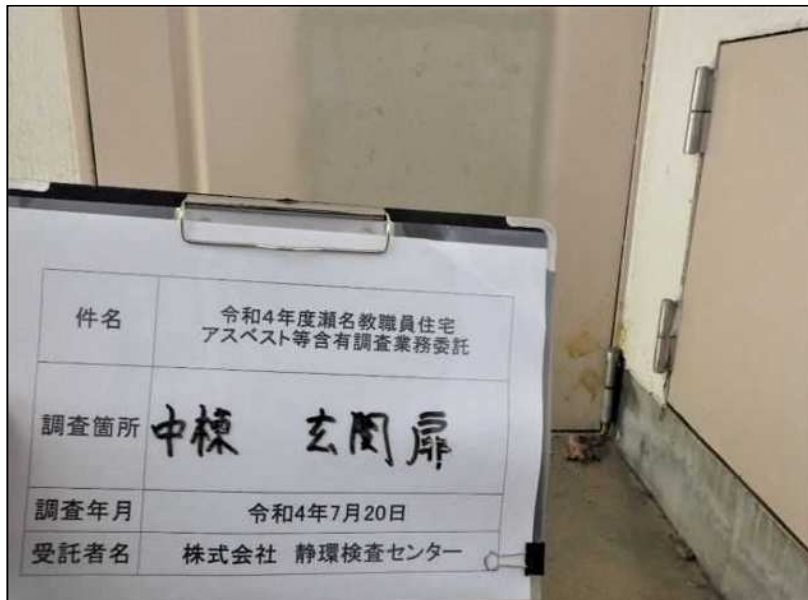 件名
令和4年度瀬名教職員住宅
アスベスト等含有調査業務委託
調査箇所
中棟 玄関扉
調査年月
令和4年7月20日
受託者名
株式会社 静環検査センター